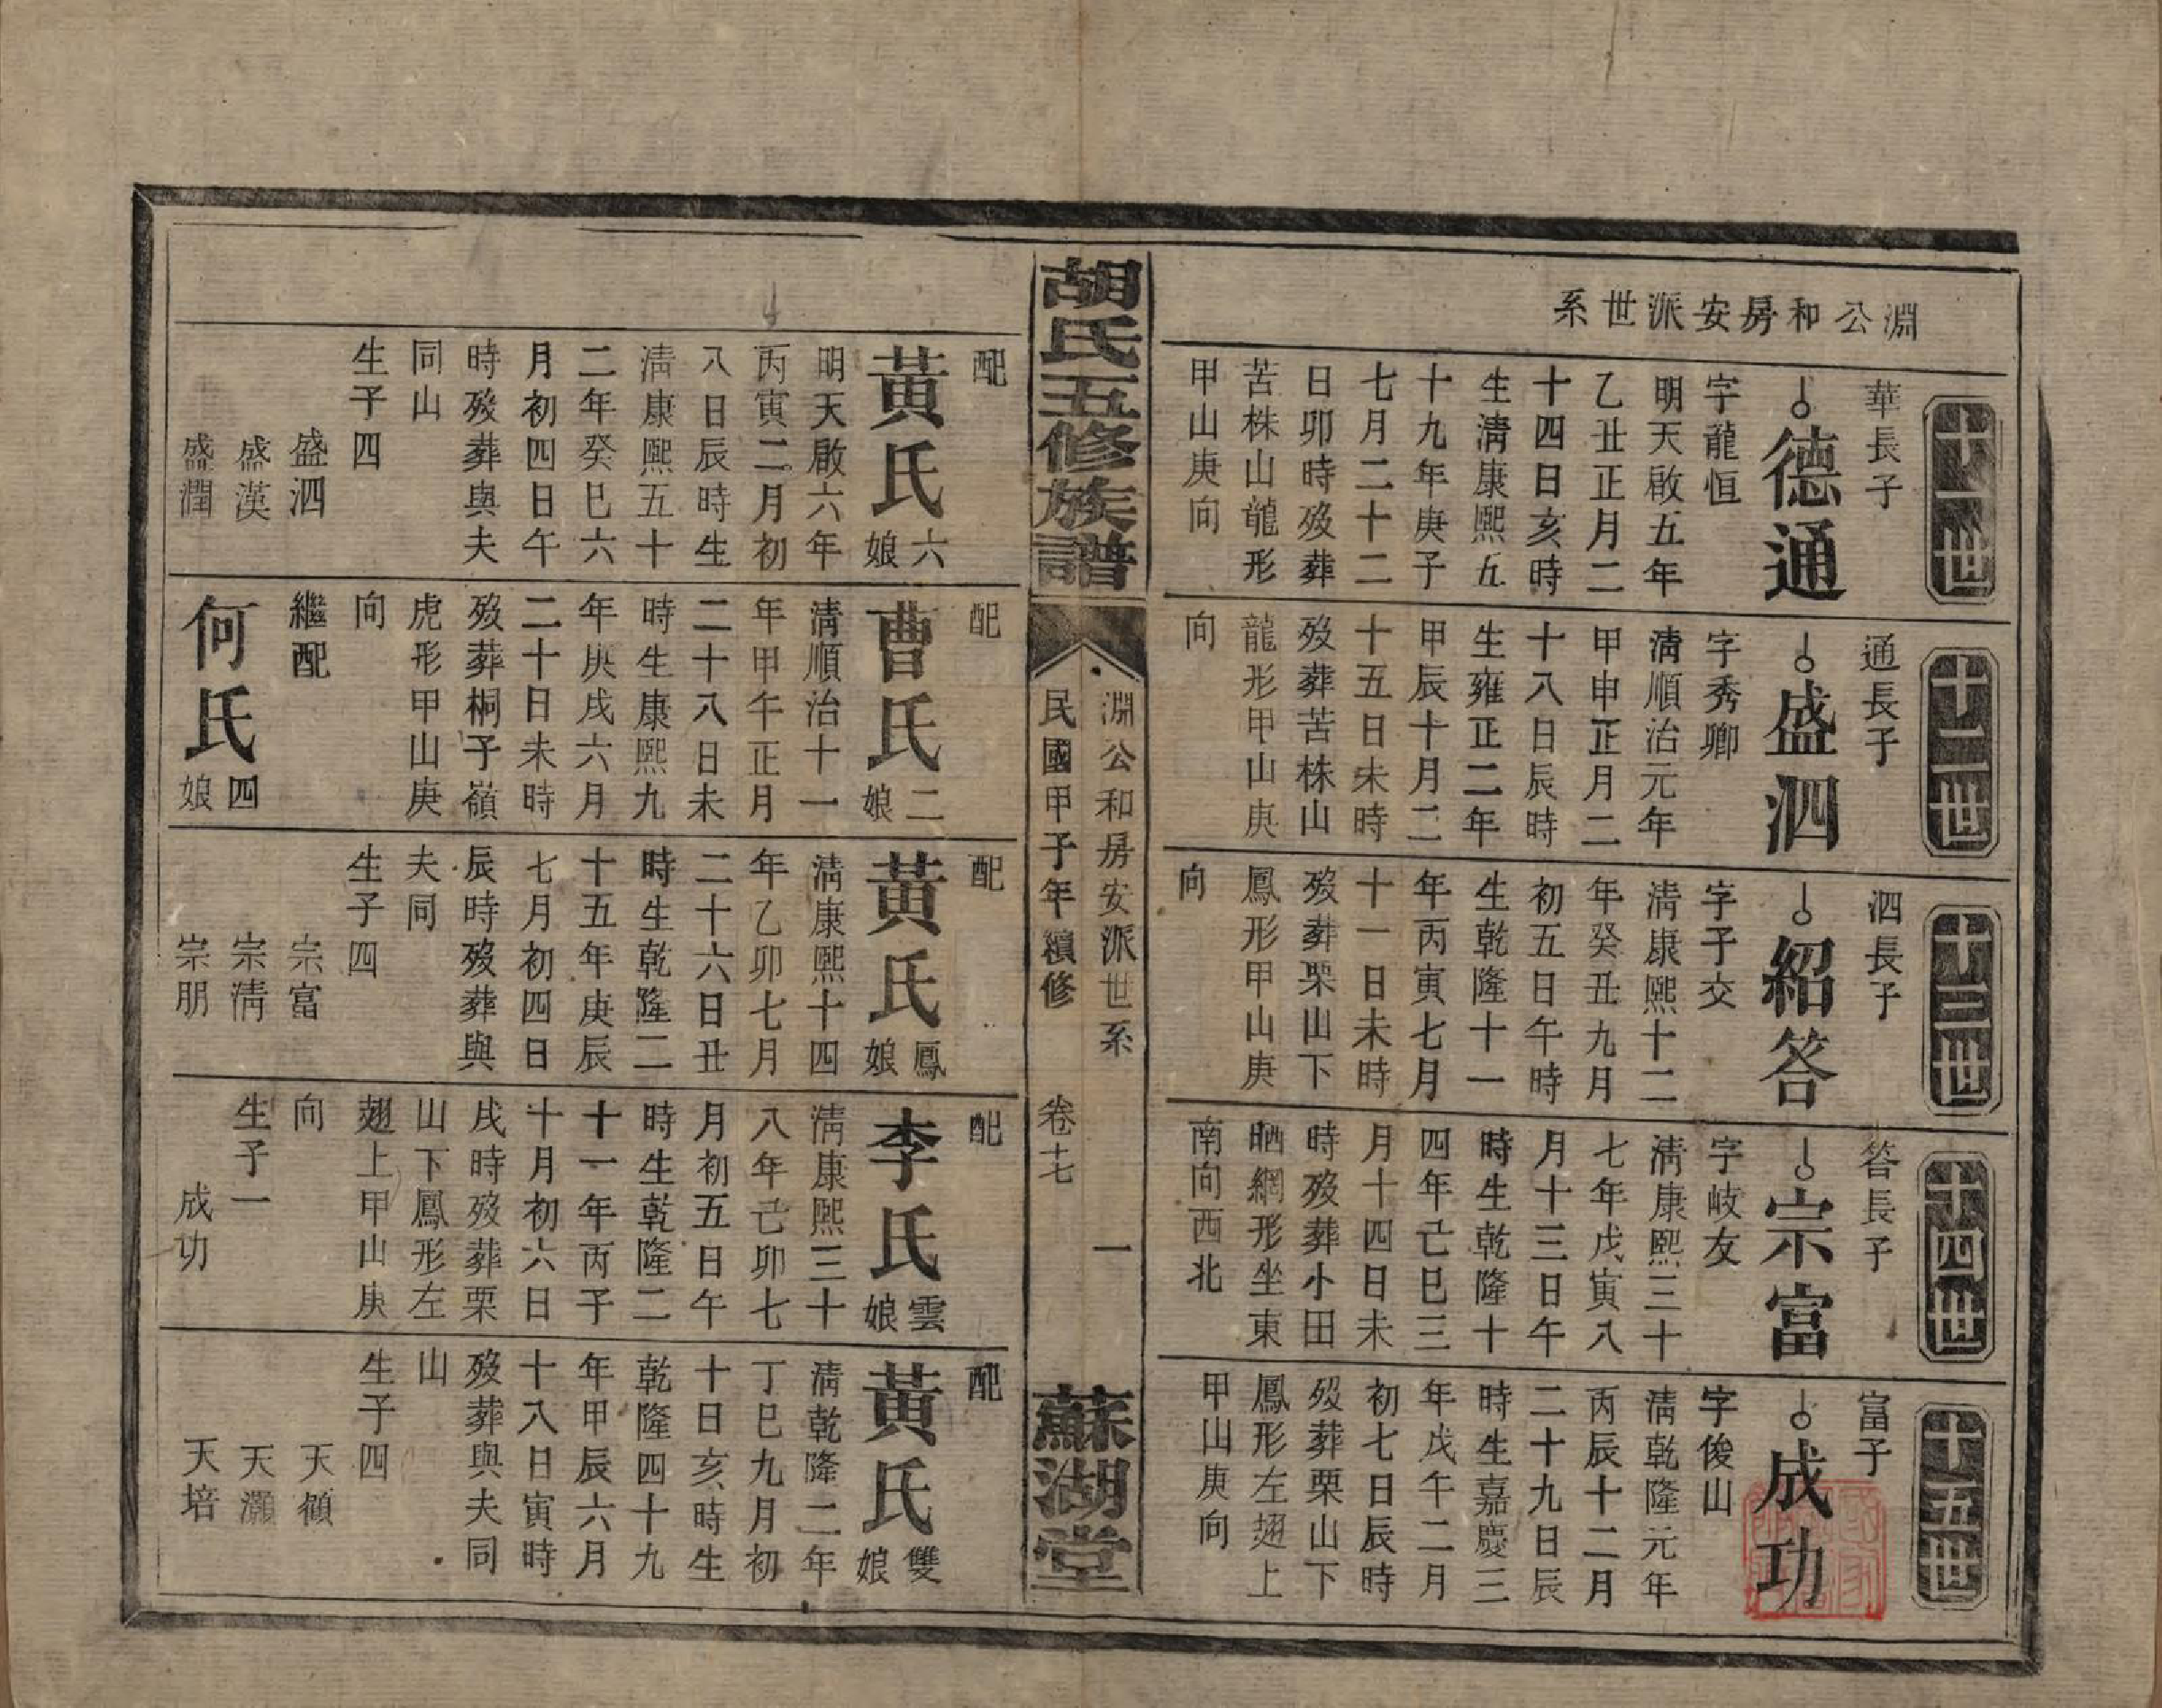 淵公和房安派世系
十一世
華長子
德通
字龍恒
明天啟五年
乙丑正月二
十四日亥時
生淸康熙五
十九年庚子
七月二十二
日卯時歿葬
苦株山龍形
甲山庚向
十二世
通長子
盛泗
字秀卿
淸順治元年
甲申正月二
十八日辰時
生雍正二年
甲辰十月二
十五日未時
歿葬苦株山
龍形甲山庚
向
十三世
泗長子
紹答
字子交
淸康熙十二
年癸丑九月
初五日午時
生乾隆十一
年丙寅七月
十一日未時
歿葬栗山下
鳳形甲山庚
向
十四世
答長子
宗富
字岐友
淸康熙三十
七年戊寅八
月十三日午
時生乾隆十
四年己巳三
月十四日未
時歿葬小田
晒網形坐東
南向西北
十五世
富子
成功
字俊山
淸乾隆元年
丙辰十二月
二十九日辰
時生嘉慶三
年戊午二月
初七日辰時
歿葬栗山下
鳳形左翅上
甲山庚向
胡氏五修族譜
淵公和房安派世系
民國甲子年續修
卷十七
一
蘇湖堂
配
黃氏六娘
明天啟六年
丙寅二月初
八日辰時生
淸康熙五十
二年癸巳六
月初四日午
時歿葬與夫
同山
生子四
盛泗
盛漢
盛潤
配
曹氏二娘
淸順治十一
年甲午正月
二十八日未
時生康熙九
年庚戌六月
二十日未時
歿葬桐子嶺
虎形甲山庚
向
繼配
何氏四娘
配
黃氏鳳娘
淸康熙十四
年乙卯七月
二十六日丑
時生乾隆二
十五年庚辰
七月初四日
辰時歿葬與
夫同
生子四
宗富
宗淸
宗朋
配
李氏雲娘
淸康熙三十
八年己卯七
月初五日午
時生乾隆二
十一年丙子
十月初六日
戌時歿葬栗
山下鳳形左
翅上甲山庚
向
生子一
成功
配
黃氏雙娘
淸乾隆二年
丁巳九月初
十日亥時生
乾隆四十九
年甲辰六月
十八日寅時
歿葬與夫同
山
生子四
天顧
天灝
天培